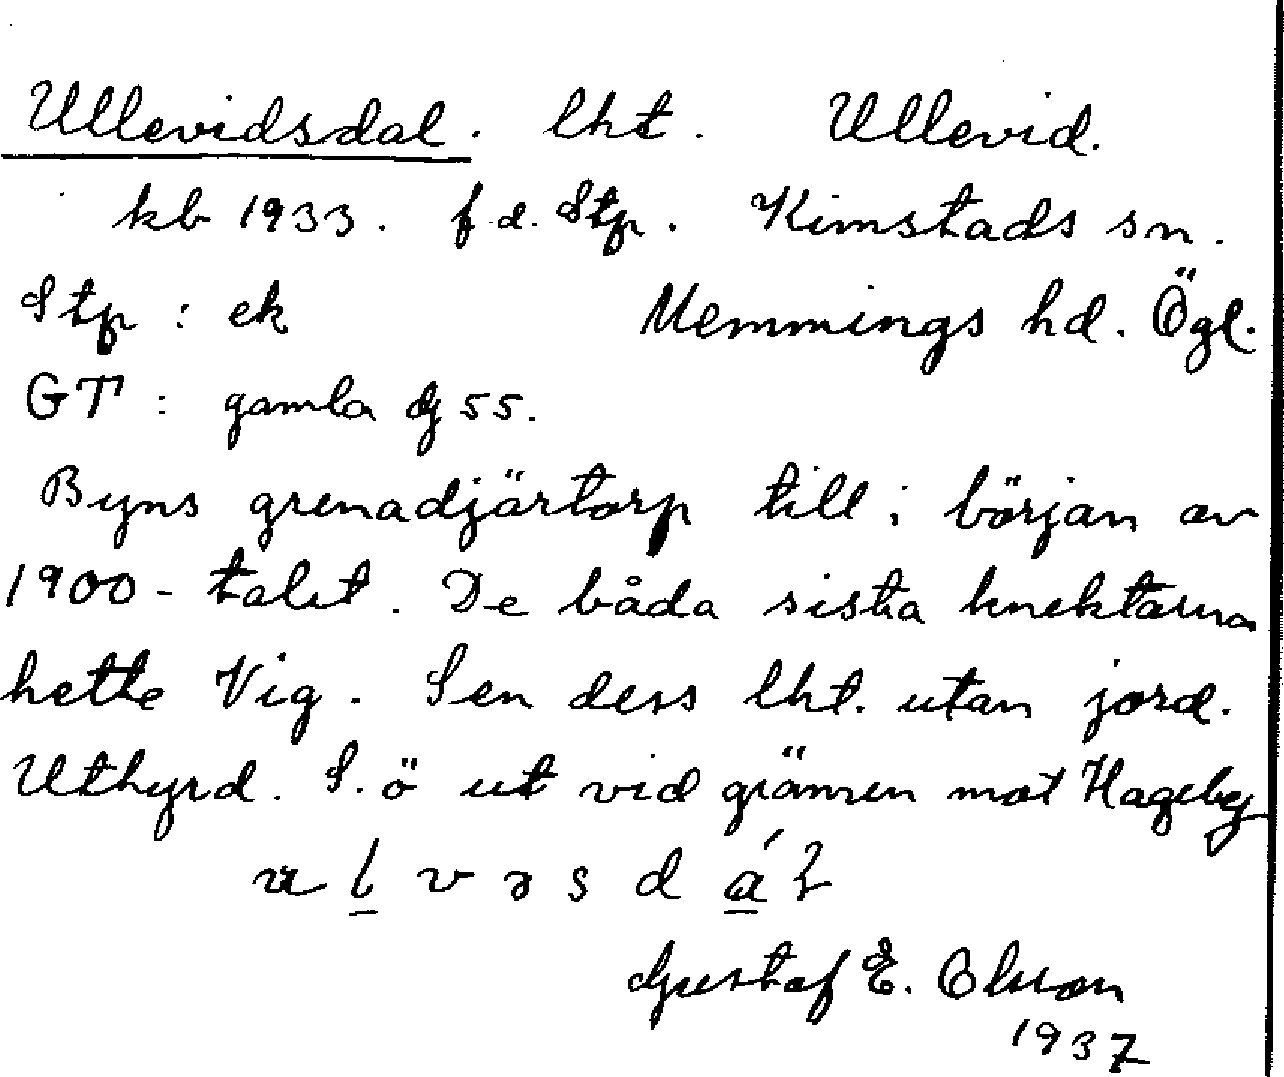 Ullevidsdal. lht. Ullevid.
kb 1933. f d. Stp. Kimstads sn.
Stp : ek Memmings hd. Ögl.
GT : gamla dj 55.
Byns grenadjärtorp till i början av
1900-talet. De båda sista knektarna
hette Vig. Sen dess lht. utan jord.
Uthyrd. S. ö ut vid gränsen mot Hageby
d á
Gustaf E. Olsson
1937